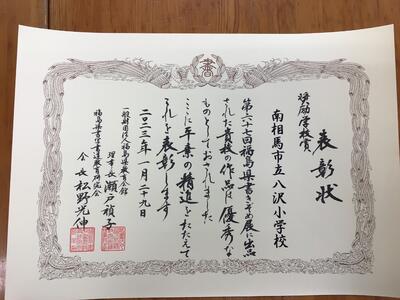 書
表彰状
奨励学校賞
南相馬市立八沢小学校
第六十七回福島県書きぞめ展に出品
された貴校の作品は優秀な
ものとしておされました
ここに平素の精進をたたえて
これを表彰します
二〇二三年一月二十九日
一般財団法人福島県教育会館
理事長 瀬戸禎子
福島県書写書道教育研究会
会長 松野光伸